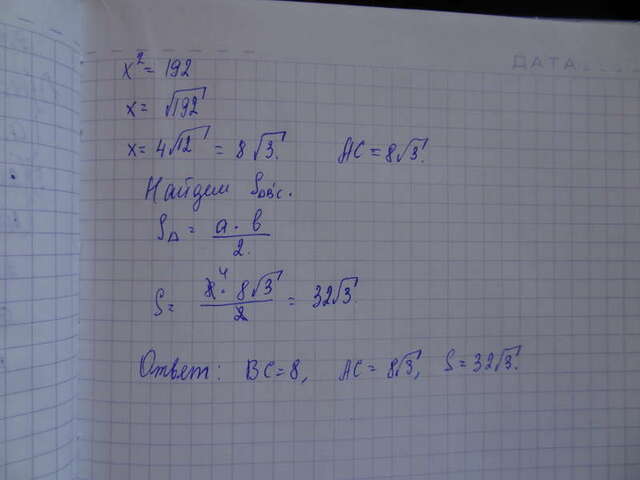 ДАТА
x² = 192
x = √192
x = 4√12 = 8√3. AC = 8√3.
Найдем S
S△ = a · b / 2.
S = 8⁴ · 8√3 / 2 = 32√3.
Ответ: BC = 8, AC = 8√3, S = 32√3.